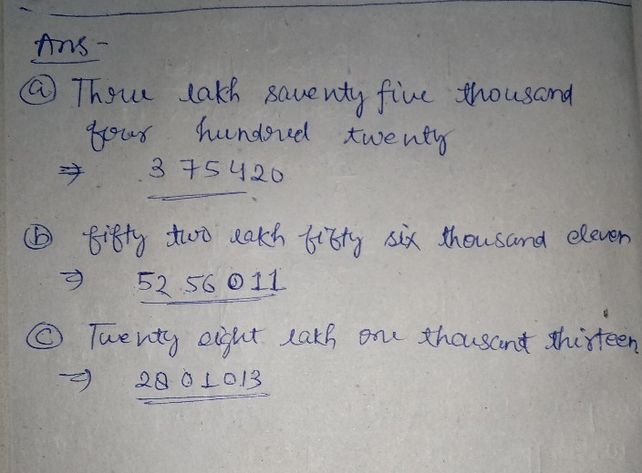 Ans-
(a) Three lakh saventy five thousand
four hundred twenty
⇒ 375420
(b) fifty two lakh fifty six thousand eleven
⇒ 52 56 011
(c) Twenty eight lakh one thousant thirteen
⇒ 28 01013